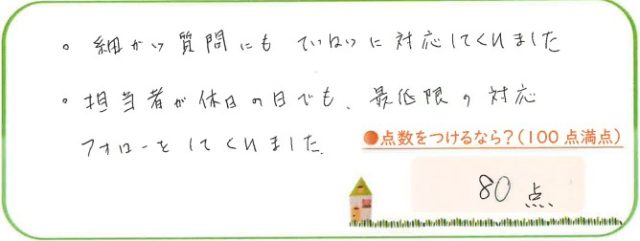 ・細かい質問にもていねいに対応してくれました
・担当者が休日の日でも、最低限の対応
フォローをしてくれました。
●点数をつけるなら？(100点満点)
80点